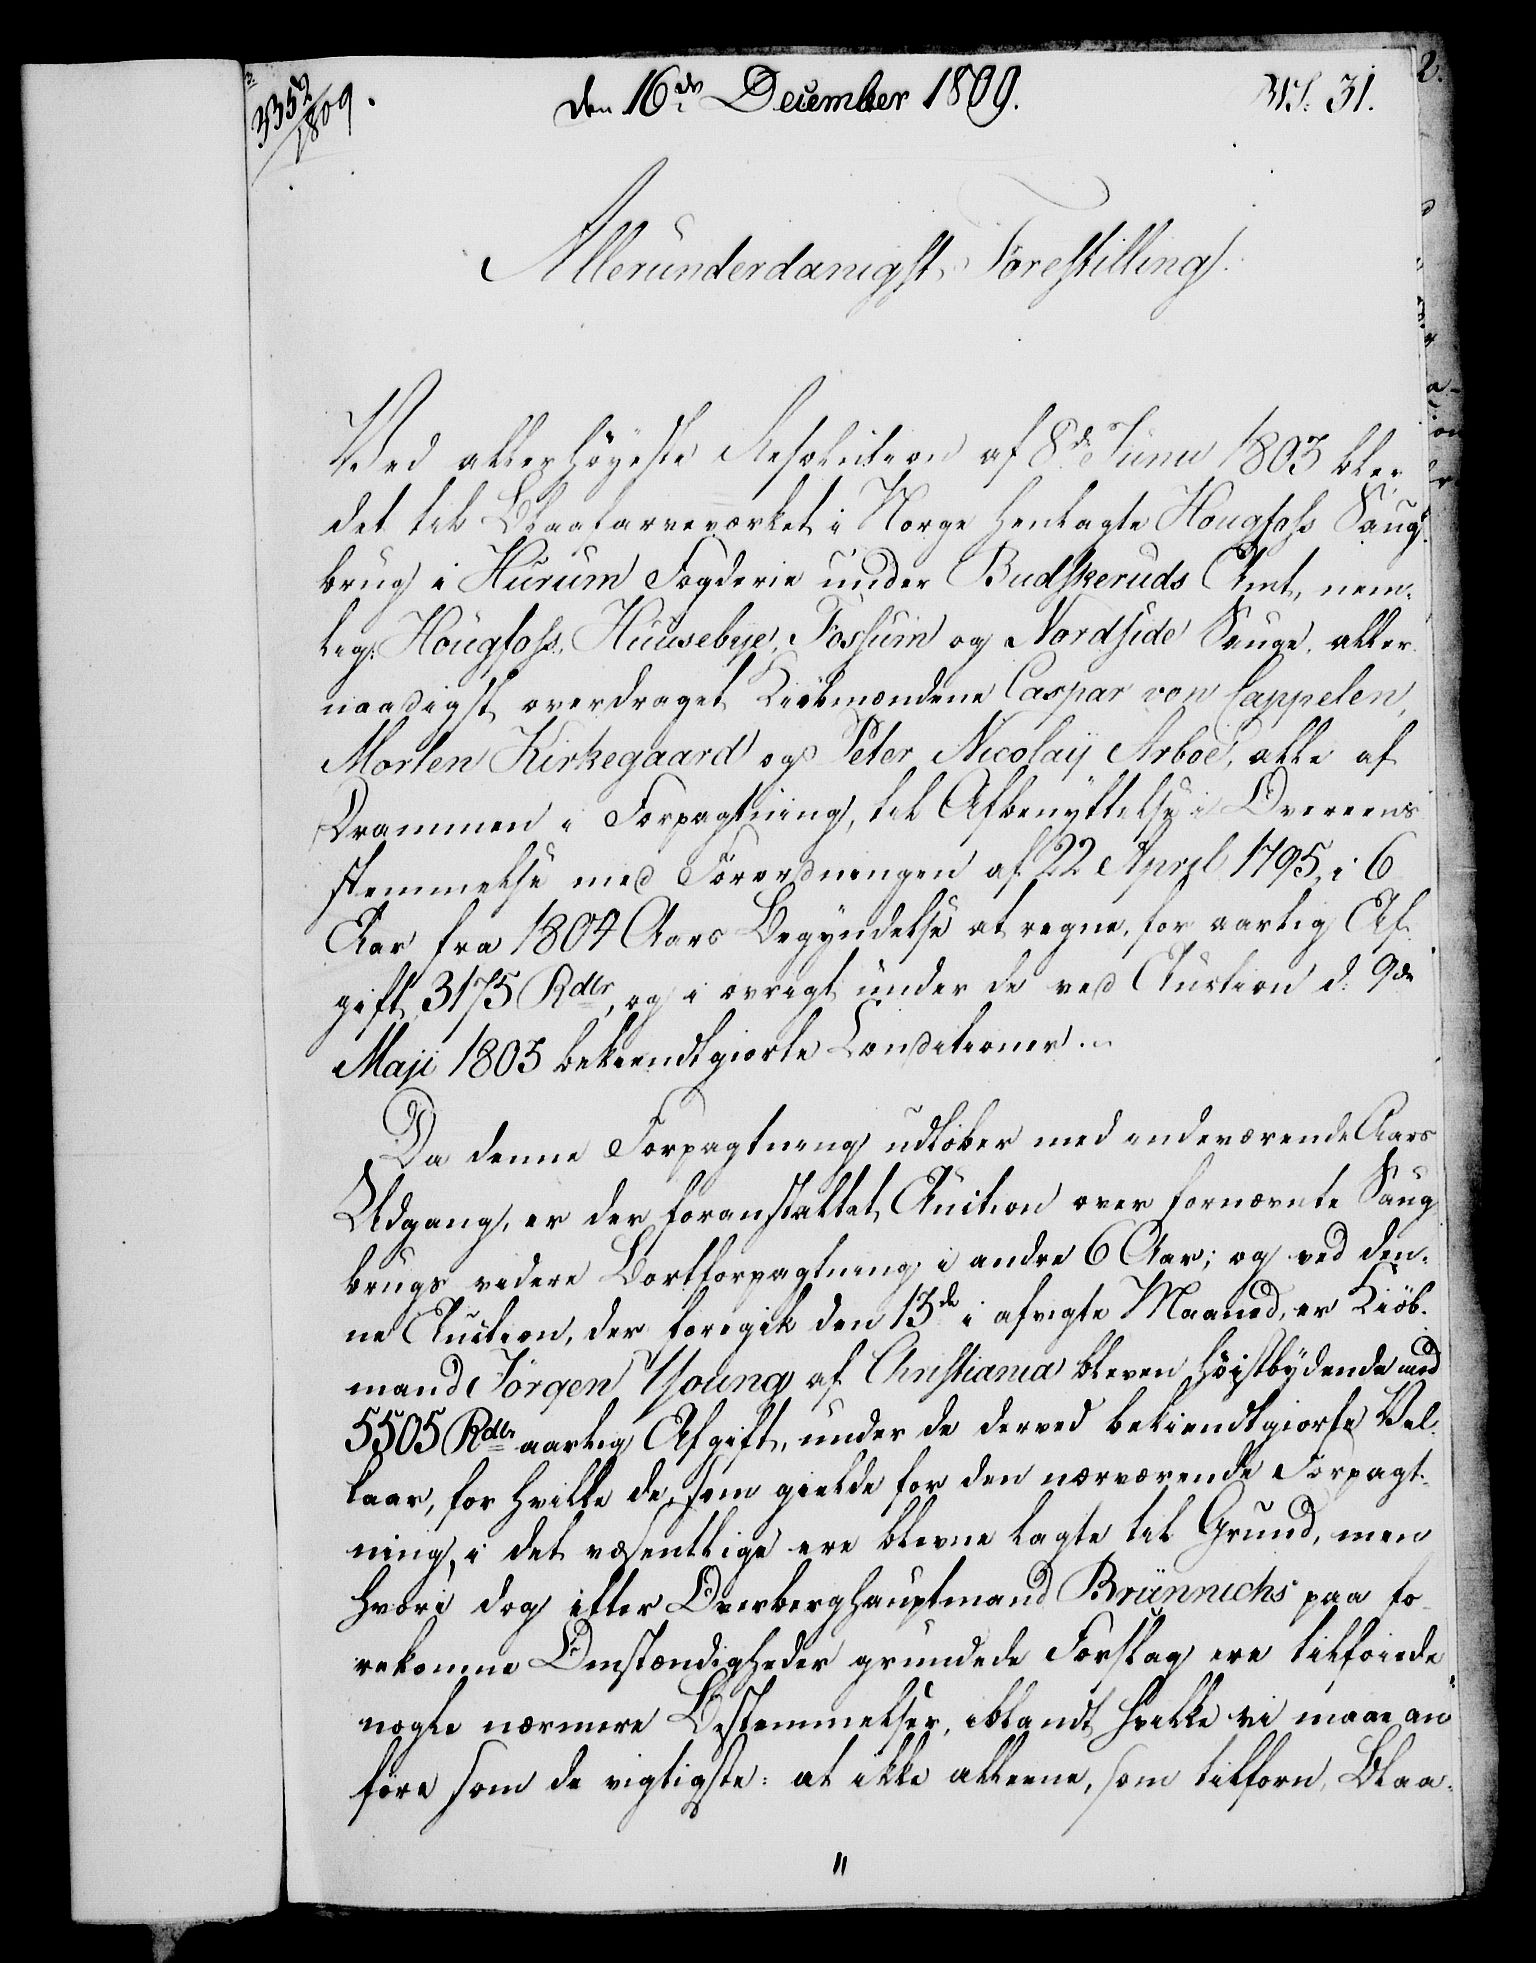 3352/1809.
den 16de December 1809.
31.
Allerunderdanigst Forestilling.
Ved allerhöyeste Resolution af 8de Junii 1803 blev
det til Blaafarveværket i Norge henlagte Hougfoss Saug-
brug i Hurum Fogderie under Budskeruds Amt, nem-
lig: Hougfoss, Huusebye, Fossum og Nordside Sauge, aller-
naadigst overdraget Kiöbmændene Caspar von Cappelen,
Morten Kirkegaard og Peter Nicolaij Arboe, alle af
Drammen i Forpagtning, til Afbenyttelse i Overeens-
stemmelse med Forordningen af 22 April 1795, i 6
Aar fra 1804 Aars Begyndelse at regne, for aarlig Af-
gift 3175 Rdlr, og i övrigt under de ved Auction d. 9de
Maji 1803 bekiendtgiorte Conditioner.
Da denne Forpagtning udlöber med indeværende Aars
Udgang, er der foranstaltet Auction over fornævnte Saug-
brugs videre Bortforpagtning i andre 6 Aar; og ved den-
ne Auction, der foregik den 13de i afvigte Maaned, er Kiöb-
mand Jörgen Young af Christiania bleven höistbydende med
5505 Rdlr aarlig Afgift, under de derved bekiendtgiorte Vil-
kaar, for hvilke de, som gielde for den nærværende Forpagt-
ning, i det væsentlige ere blevne lagte til Grund, men
hvori dog efter Overberghauptmand Brünnichs paa fo-
rekomne Omstændigheder grundede Forslag ere tilföiede
nogle nærmere Bestemmelser, iblandt hvilke vi maae an-
före som de vigtigste: at ikke alleene, som tilforn, Blaa-
"